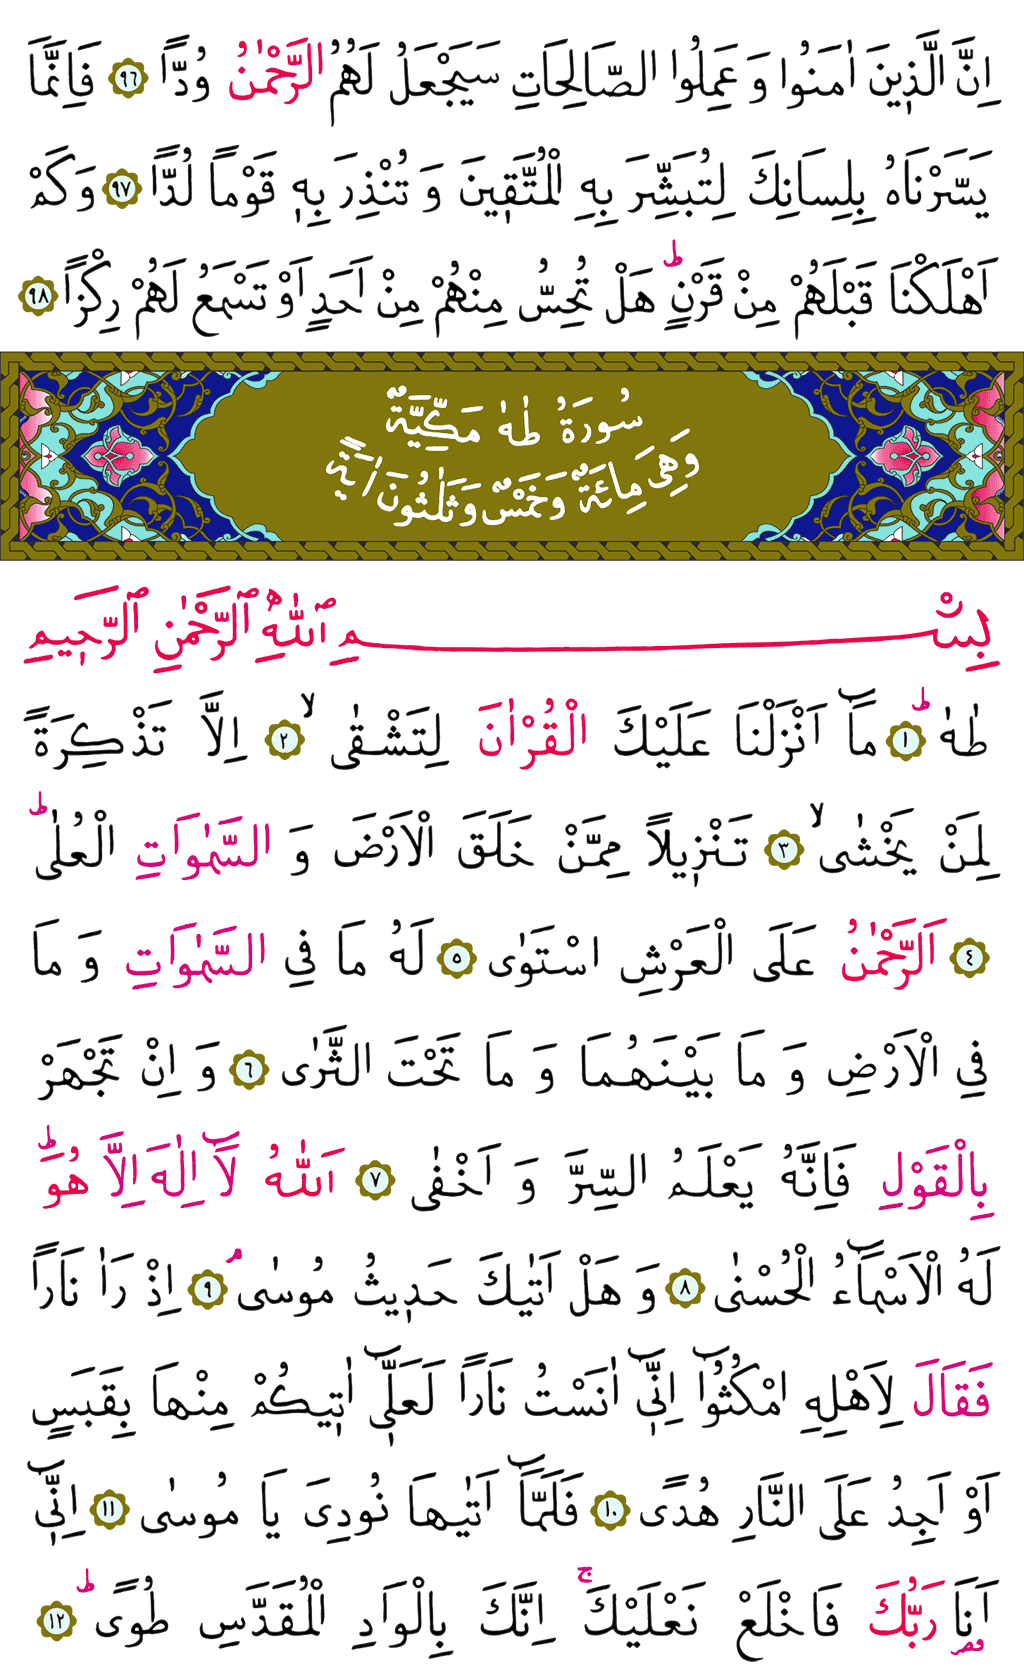 اِنَّ الَّذٖينَ اٰمَنُوا وَ عَمِلُوا الصَّالِحَاتِ سَيَجْعَلُ لَهُمُ الرَّحْمٰنُ وُدًّا ﴿٩٦﴾ فَاِنَّمَا
يَسَّرْنَاهُ بِلِسَانِكَ لِتُبَشِّرَ بِهِ الْمُتَّقٖينَ وَ تُنْذِرَ بِهٖ قَوْماً لُدًّا ﴿٩٧﴾ وَ كَمْ
اَهْلَكْنَا قَبْلَهُمْ مِنْ قَرْنٍ ؕ هَلْ تُحِسُّ مِنْهُمْ مِنْ اَحَدٍ اَوْ تَسْمَعُ لَهُمْ رِكْزاً ﴿٩٨﴾
سُورَةُ طٰهٰ مَكِّيَّةٌ
وَهِىَ مِائَةٌ وَخَمْسٌ وَثَلٰثُونَ اٰيَةً
بِسْمِ ٱللّٰهِ ٱلرَّحْمٰنِ ٱلرَّحٖيمِ
طٰهٰ ؕ ﴿١﴾ مَٓا اَنْزَلْنَا عَلَيْكَ الْقُرْاٰنَ لِتَشْقٰى ۙ ﴿٢﴾ اِلَّا تَذْكِرَةً
لِمَنْ يَخْشٰى ۙ ﴿٣﴾ تَنْزٖيلاً مِمَّنْ خَلَقَ الْاَرْضَ وَ السَّمٰوَاتِ الْعُلٰى ؕ
﴿٤﴾ اَلرَّحْمٰنُ عَلَى الْعَرْشِ اسْتَوٰى ﴿٥﴾ لَهُ مَا فِي السَّمٰوَاتِ وَ مَا
فِي الْاَرْضِ وَ مَا بَيْنَهُمَا وَ مَا تَحْتَ الثَّرٰى ﴿٦﴾ وَ اِنْ تَجْهَرْ
بِالْقَوْلِ فَاِنَّهُ يَعْلَمُ السِّرَّ وَ اَخْفٰى ﴿٧﴾ اَللّٰهُ لَٓا اِلٰهَ اِلَّا هُوَ ؕ
لَهُ الْاَسْمَٓاءُ الْحُسْنٰى ﴿٨﴾ وَ هَلْ اَتٰيكَ حَدٖيثُ مُوسٰى ۢ ﴿٩﴾ اِذْ رَاٰ نَاراً
فَقَالَ لِاَهْلِهِ امْكُثُٓوا اِنّٖٓي اٰنَسْتُ نَاراً لَعَلّٖٓي اٰتٖيكُمْ مِنْهَا بِقَبَسٍ
اَوْ اَجِدُ عَلَى النَّارِ هُدًى ﴿١٠﴾ فَلَمَّٓا اَتٰيهَا نُودِىَ يَا مُوسٰى ﴿١١﴾ اِنّٖٓي
اَنَا۬ رَبُّكَ فَاخْلَعْ نَعْلَيْكَ ۚ اِنَّكَ بِالْوَادِ الْمُقَدَّسِ طُوًى ؕ ﴿١٢﴾
قصر